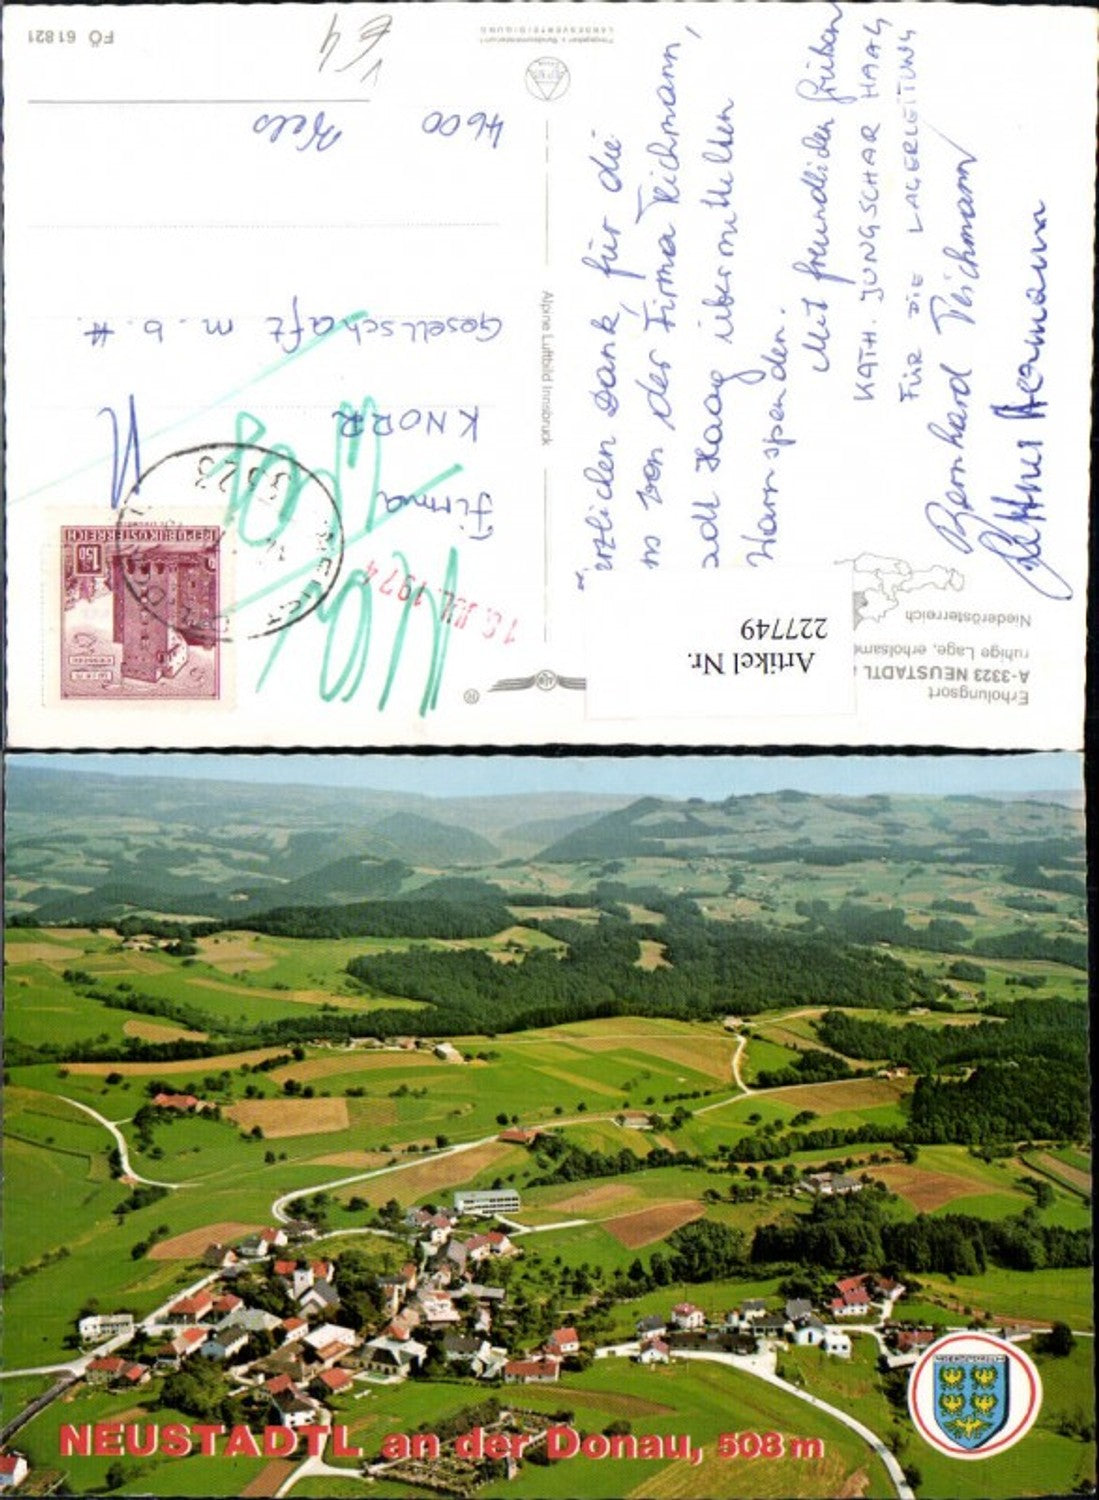 FÖ 61821
€ 4
Freigegeben v. Bundesministerium f.
LANDESVERTEIDIGUNG
Alpine Luftbild Innsbruck
Erholungsort
A-3323 NEUSTADTL
ruhige Lage, erholsame
Niederösterreich
Artikel Nr.
227749
Herzlichen Dank für die
uns von der Firma Teichmann,
Stadt Haag übermittelten
Warenspenden.
Mit freundlichen Grüßen
KATH. JUNGSCHAR HAAG
FÜR DIE LAGERLEITUNG
Bernhard Teichmann
REPUBLIK ÖSTERREICH
1.50
3323
16. JUL. 1974
Firma
KNORR
Gesellschaft m. b. H.
4600 Wels
®
NEUSTADTL an der Donau, 508 m